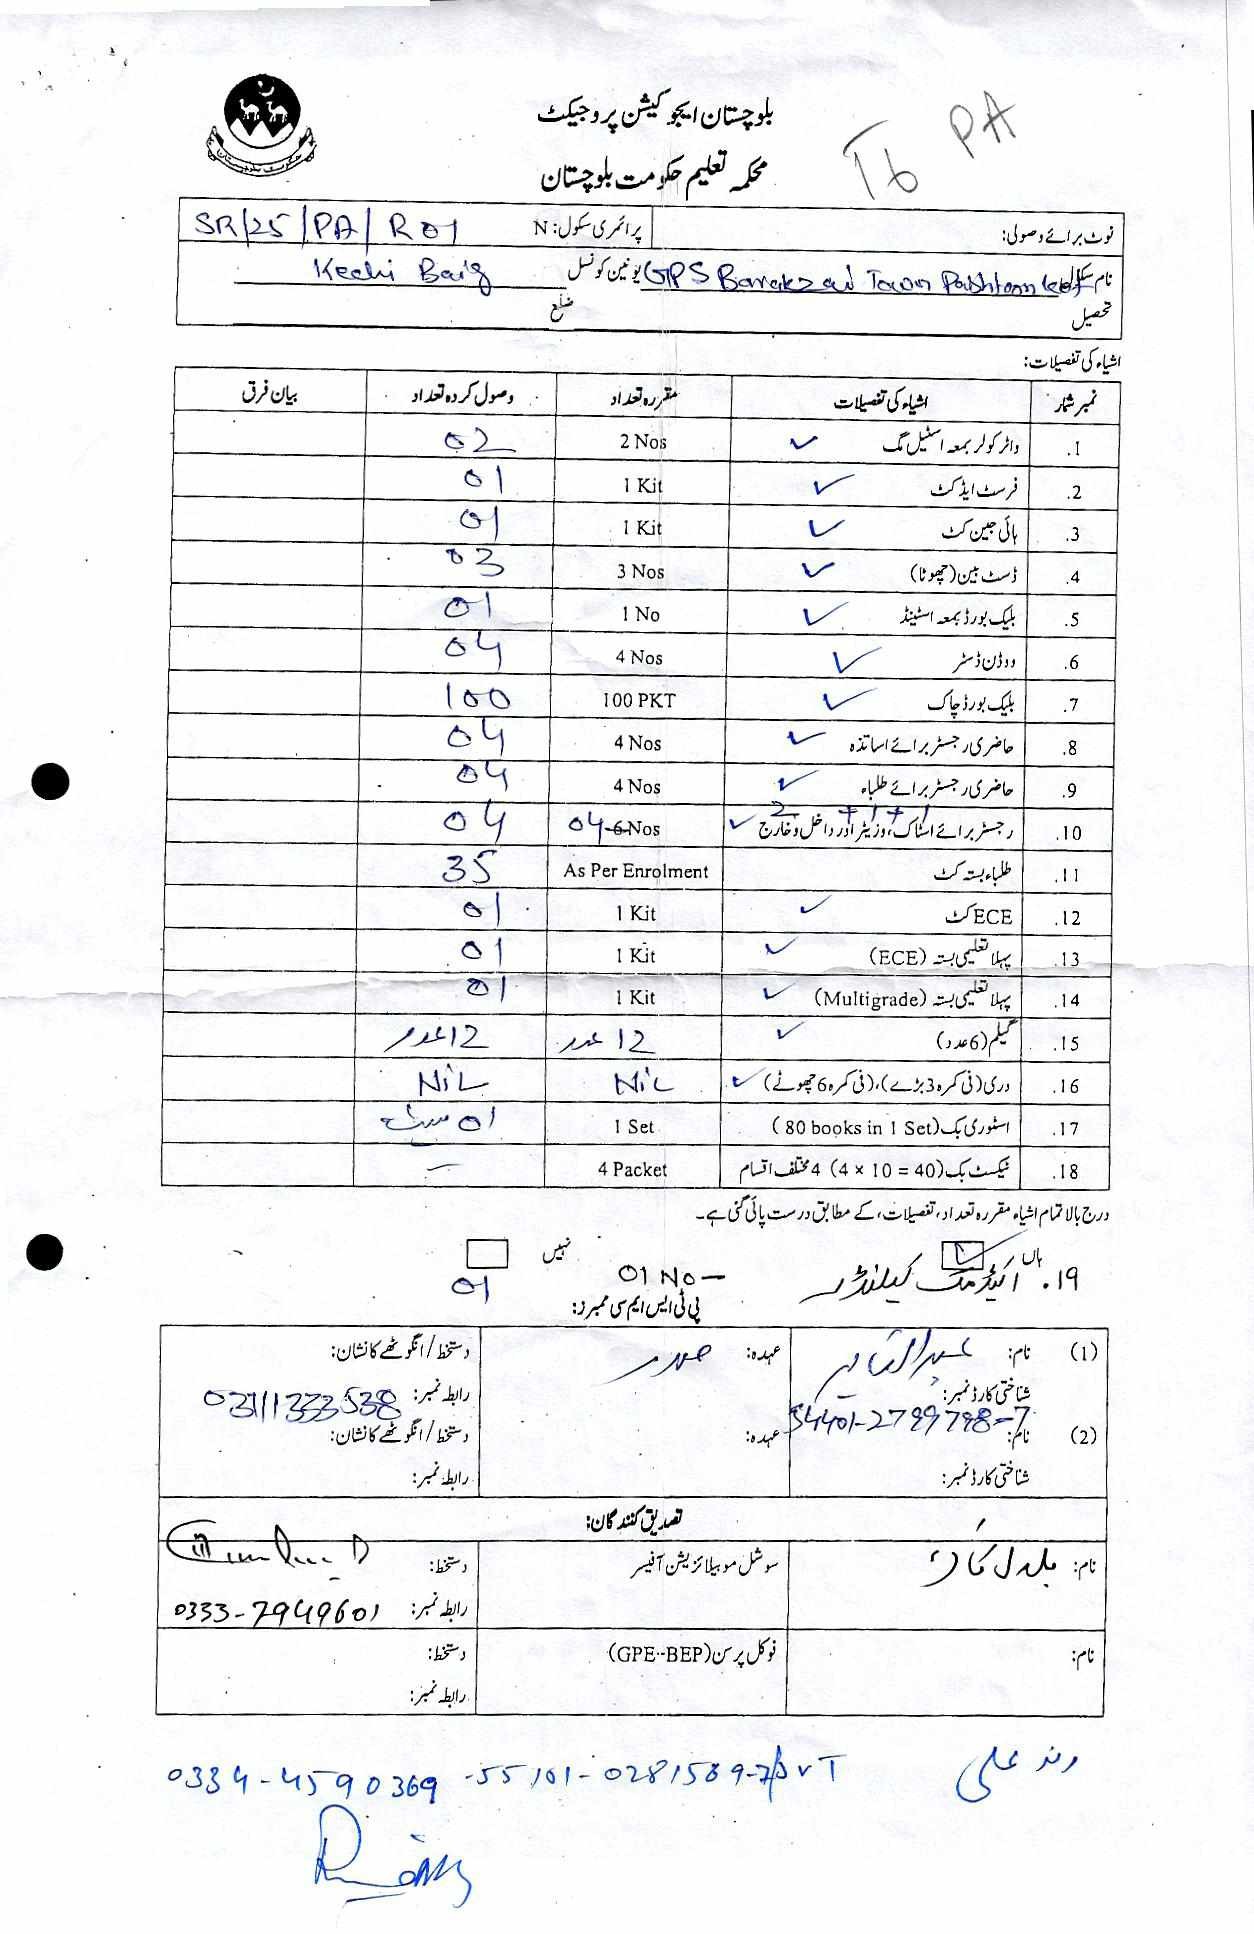 بلوچستان ایجوکیشن پروجیکٹ
T6 PA
محکمہ تعلیم حکومت بلوچستان
نوٹ برائے وصولی: پرائمری سکول: N SR/25/PA/R01
نام سکول GPS Barakzai Town Pashtoon یونین کونسل Kechi Baig
تحصیل ضلع
اشیاء کی تفصیلات:
نمبر شمار اشیاء کی تفصیلات مقررہ تعداد وصول کردہ تعداد بیان فرق
1. واٹر کولر بمعہ اسٹیل مگ ✓ 2 Nos 02
2. فرسٹ ایڈ کٹ ✓ 1 Kit 01
3. ہائی جین کٹ ✓ 1 Kit 01
4. ڈسٹ بین (چھوٹا) ✓ 3 Nos 03
5. بلیک بورڈ بمعہ اسٹینڈ ✓ 1 No 01
6. ووڈن ڈسٹر ✓ 4 Nos 04
7. بلیک بورڈ چاک ✓ 100 PKT 100
8. حاضری رجسٹر برائے اساتذہ ✓ 4 Nos 04
9. حاضری رجسٹر برائے طلباء ✓ 4 Nos 04
2 + 1 + 1
10. رجسٹر برائے اسٹاک، وزیٹر اور داخل و خارج ✓ 04 6 Nos 04
11. طلباء بستہ کٹ As Per Enrolment 35
12. ECE کٹ ✓ 1 Kit 01
13. پہلا تعلیمی بستہ (ECE) ✓ 1 Kit 01
14. پہلا تعلیمی بستہ (Multigrade) ✓ 1 Kit 01
15. گیلم (6 عدد) ✓ 12 عدد 12 عدد
16. دری (فی کمرہ 3 بڑے)، (فی کمرہ 6 چھوٹے) ✓ NiL NiL
17. اسٹوری بک (80 books in 1 Set) 1 Set 01 سیٹ
18. ٹیکسٹ بک (4 × 10 = 40) 4 مختلف اقسام 4 Packet –
درج بالا تمام اشیاء مقررہ تعداد، تفصیلات، کے مطابق درست پائی گئی ہے۔
ہاں ✓ نہیں
19. اکیڈمک کیلنڈر 01 No – 01
پی ٹی ایس ایم سی ممبرز:
(1) نام: عبدالقادر عہدہ: صدر دستخط/انگوٹھے کا نشان:
شناختی کارڈ نمبر: 54401-2799798-7 رابطہ نمبر: 03111333538
(2) نام: عہدہ: دستخط/انگوٹھے کا نشان:
شناختی کارڈ نمبر: رابطہ نمبر:
تصدیق کنندگان:
نام: سوشل موبیلائزیشن آفیسر دستخط:
رابطہ نمبر: 0333-7949601
نام: فوکل پرسن (GPE-BEP) دستخط:
رابطہ نمبر:
علی 0334-4590369 -55101-0281589-7 JVT